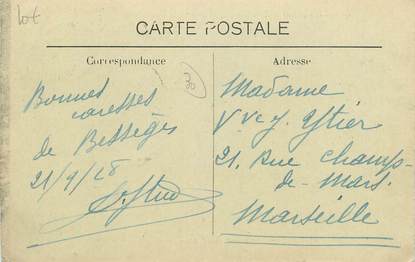 lot
CARTE POSTALE
Correspondance
Adresse
30
Bonnes
caresses
de Bessèges
21/9/28
Madame
Vve J. Ytier
21. Rue Champ-
de-Mars.
Marseille